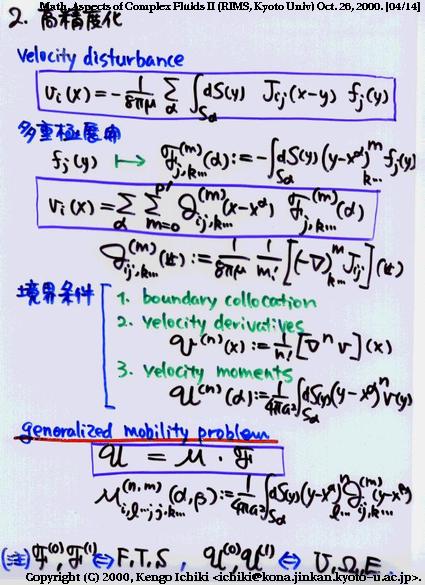 Math. Aspects of Complex Fluids II (RIMS, Kyoto Univ) Oct. 26, 2000. [04/14]
2. 高精度化
velocity disturbance
v_i(x) = -1/8πμ Σ_α ∫_{Sα} dS(y) J_{ij}(x-y) f_j(y)
多重極展開
f_j(y) ↦ 𝓕^{(m)}_{j,k…}(α) := -∫_{Sα} dS(y) (y-x^α)^m_{k…} f_j(y)
v_i(x) = Σ_α Σ_{m=0}^{p'} 𝒥^{(m)}_{ij,k…}(x-x^α) 𝓕^{(m)}_{j,k…}(α)
𝒥^{(m)}_{ij,k…}(x) := 1/8πμ 1/m! [(-∇)^m_{k…} J_{ij}](x)
境界条件
1. boundary collocation
2. velocity derivatives
𝒱^{(n)}(x) := 1/n! [∇^n v](x)
3. velocity moments
𝒰^{(n)}(α) := 1/4πa² ∫_{Sα} dS(y) (y-x^α)^n v(y)
generalized mobility problem
𝒰 = 𝓜 · 𝓕
𝓜^{(n,m)}_{i,l…j,k…}(α,β) := 1/4πa² ∫_{Sα} dS(y) (y-x^α)^n_{l…} 𝒥^{(m)}_{ij,k…}(y-x^β)
(注) 𝓕^{(0)}, 𝓕^{(1)} ⇔ F,T,S , 𝒰^{(0)}, 𝒰^{(1)} ⇔ U,Ω,E
Copyright (C) 2000, Kengo Ichiki <ichiki@kona.jinkan.kyoto-u.ac.jp>.